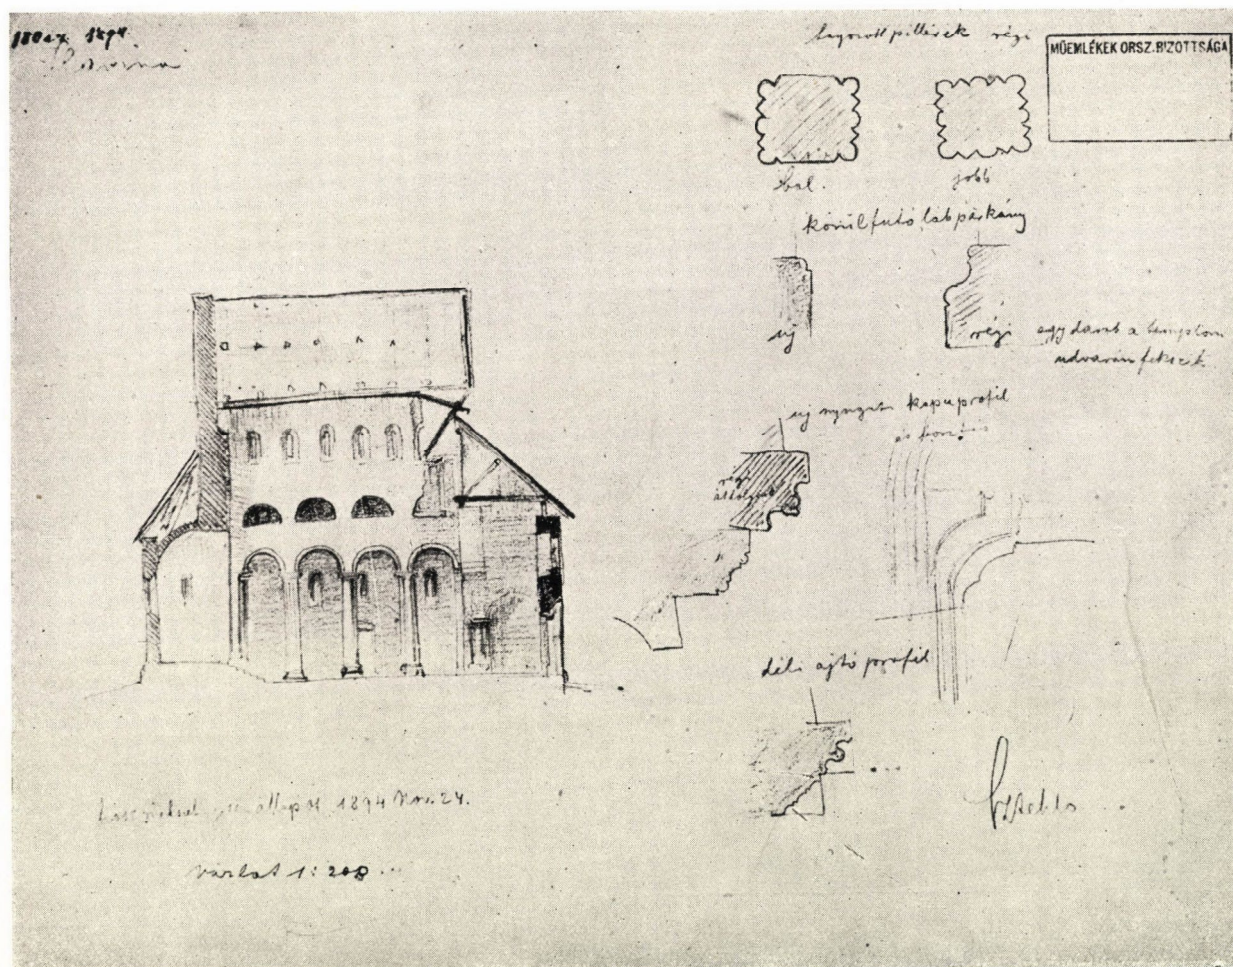 1894
pillérek régi
MŰEMLÉKEK ORSZ. BIZOTTSÁGA
bal.
jobb
körülfutó lábpárkány
új
régi
egy darab a templom
udvarán fekszik
új nyugati kapuprofil
régi
déli ajtó profil
állapot 1894 Nov. 24.
vázlat 1:200